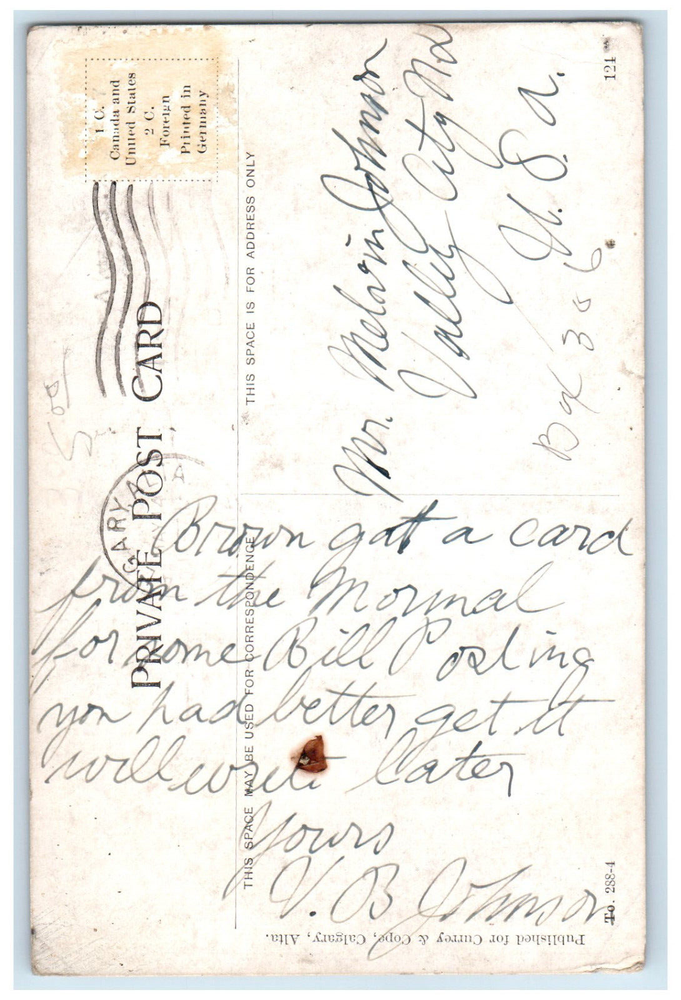 PRIVATE POST CARD
1 C.
Canada and
United States
2 C.
Foreign
Printed in
Germany
GARY
A
THIS SPACE IS FOR ADDRESS ONLY
Mr. Melvin Johnson
Valley City Nd
U. S. a.
Box 306
121
THIS SPACE MAY BE USED FOR CORRESPONDENCE
Brown got a card
from the Mormal
for some Bill Posting
you had better get it
will write later
Yours
V. B Johnson
To. 288-4
Published for Currey & Cope, Calgary, Alta.